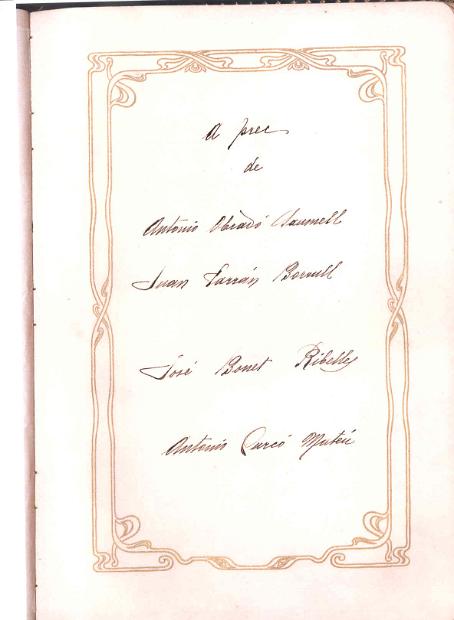 A prec
de
Antonio Obradó Saumell
Juan Farrán Borrull
José Bonet Ribelles
Antonio Curcó Mateu